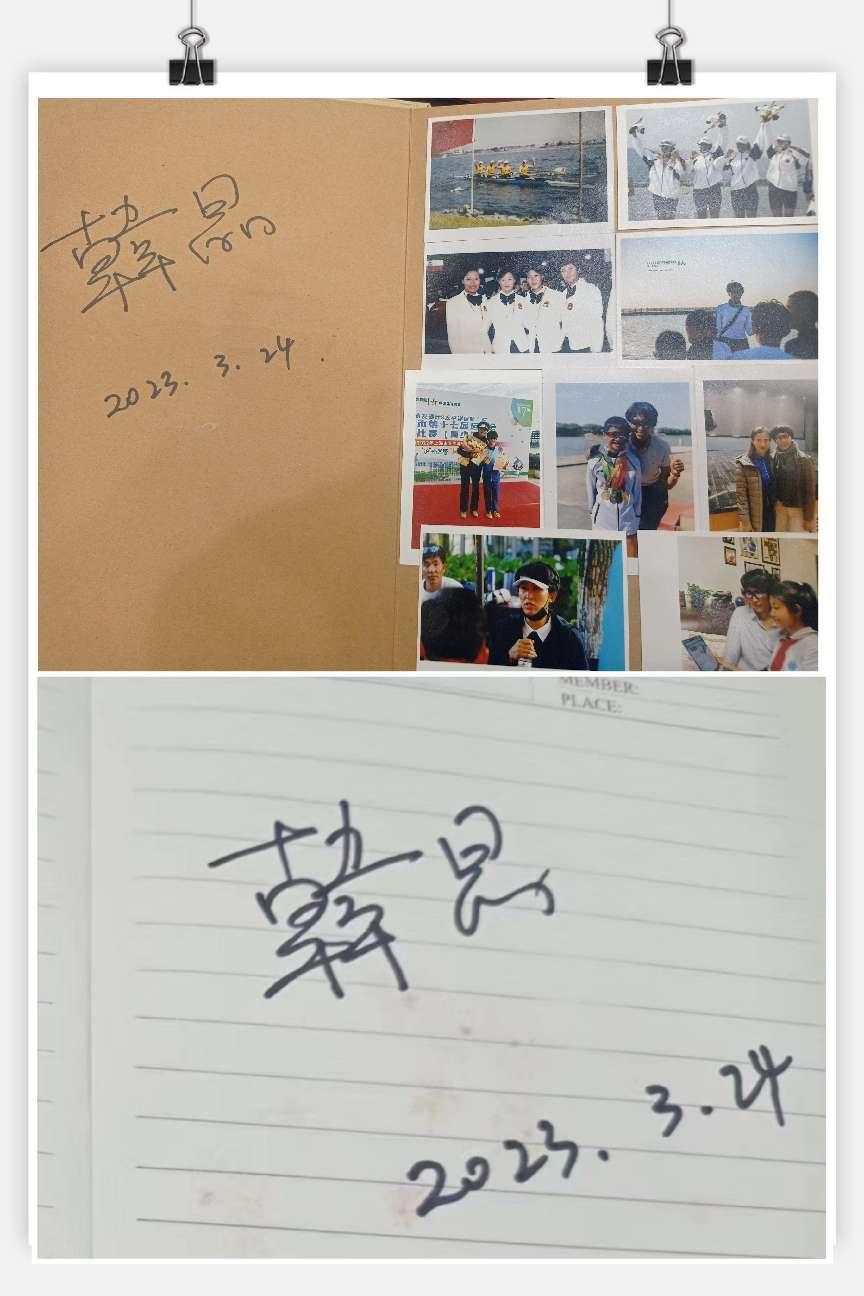 韓晶
2023.3.24.
市第十七届
比赛（青少
MEMBER:
PLACE:
韓晶
2023.3.24